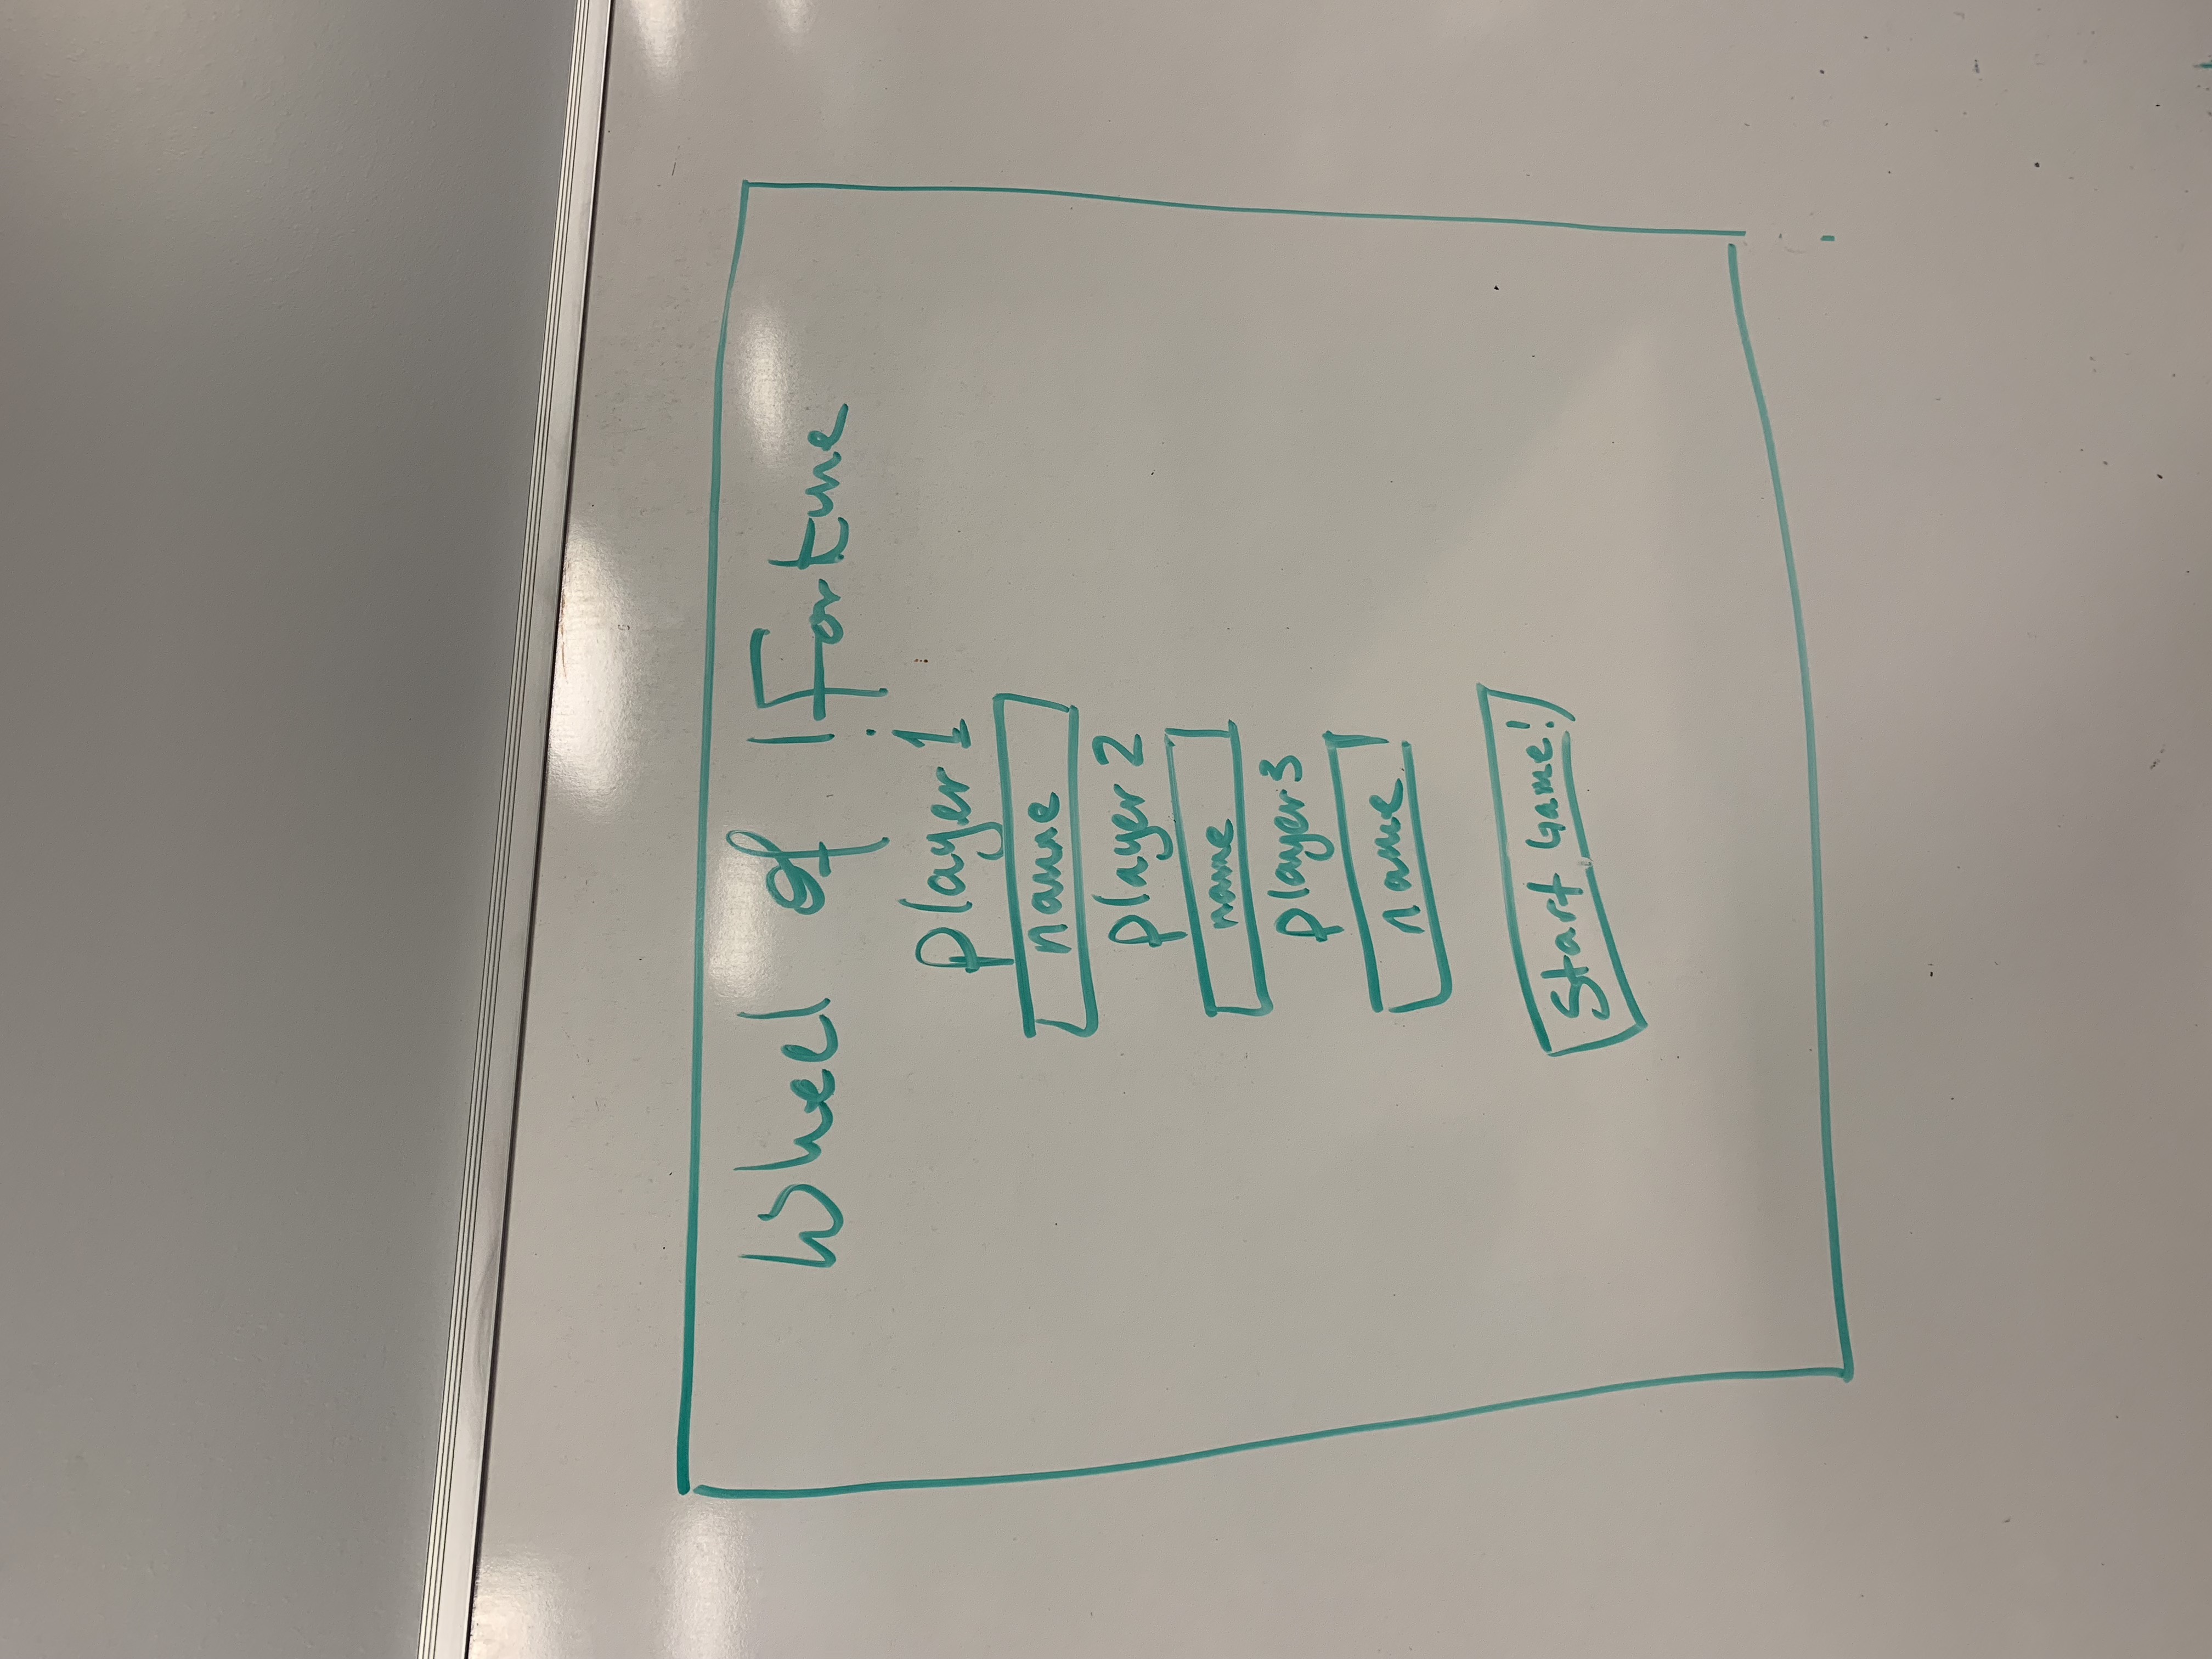 Wheel of Fortune
player 1
name
player 2
name
player 3
name
Start Game!